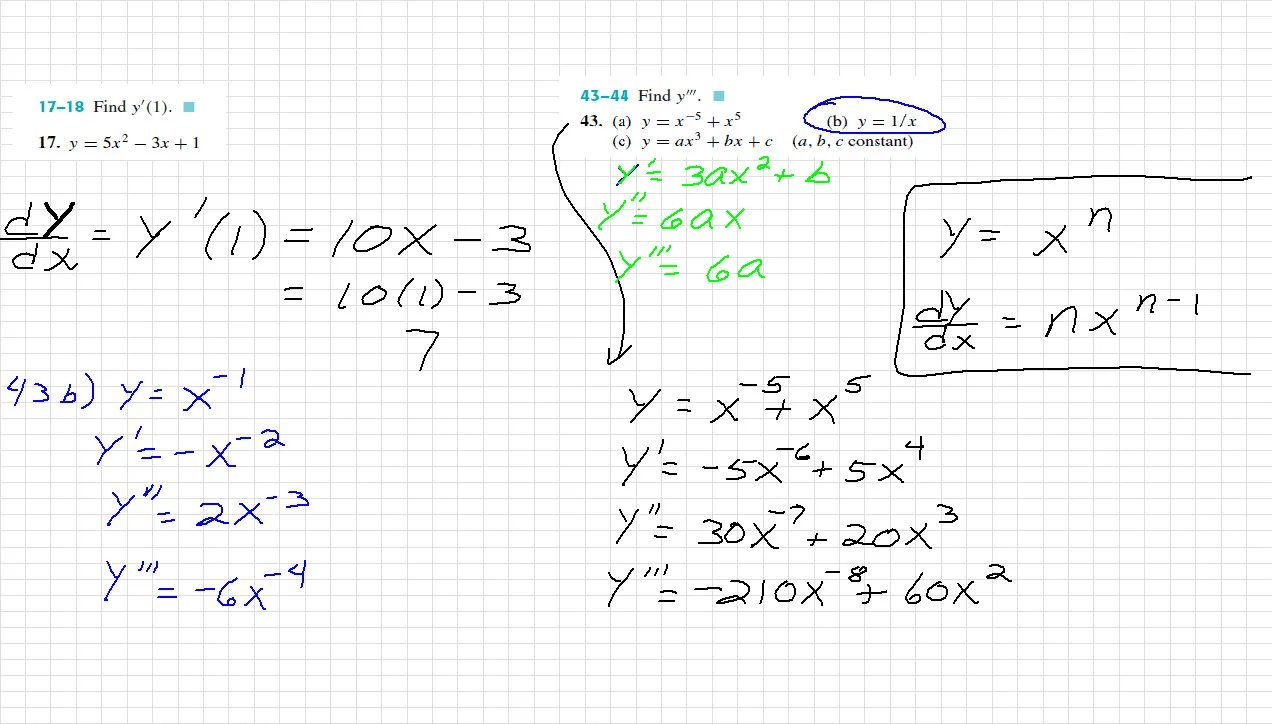 17–18 Find y′(1).
17. y = 5x² − 3x + 1
dy/dx = y′(1) = 10x − 3
= 10(1) − 3
7
43b) y = x⁻¹
y′ = −x⁻²
y″ = 2x⁻³
y‴ = −6x⁻⁴
43–44 Find y‴.
43. (a) y = x⁻⁵ + x⁵ (b) y = 1/x
(c) y = ax³ + bx + c (a, b, c constant)
y′ = 3ax² + b
y″ = 6ax
y‴ = 6a
y = x⁻⁵ + x⁵
y′ = −5x⁻⁶ + 5x⁴
y″ = 30x⁻⁷ + 20x³
y‴ = −210x⁻⁸ + 60x²
y = xⁿ
dy/dx = nxⁿ⁻¹